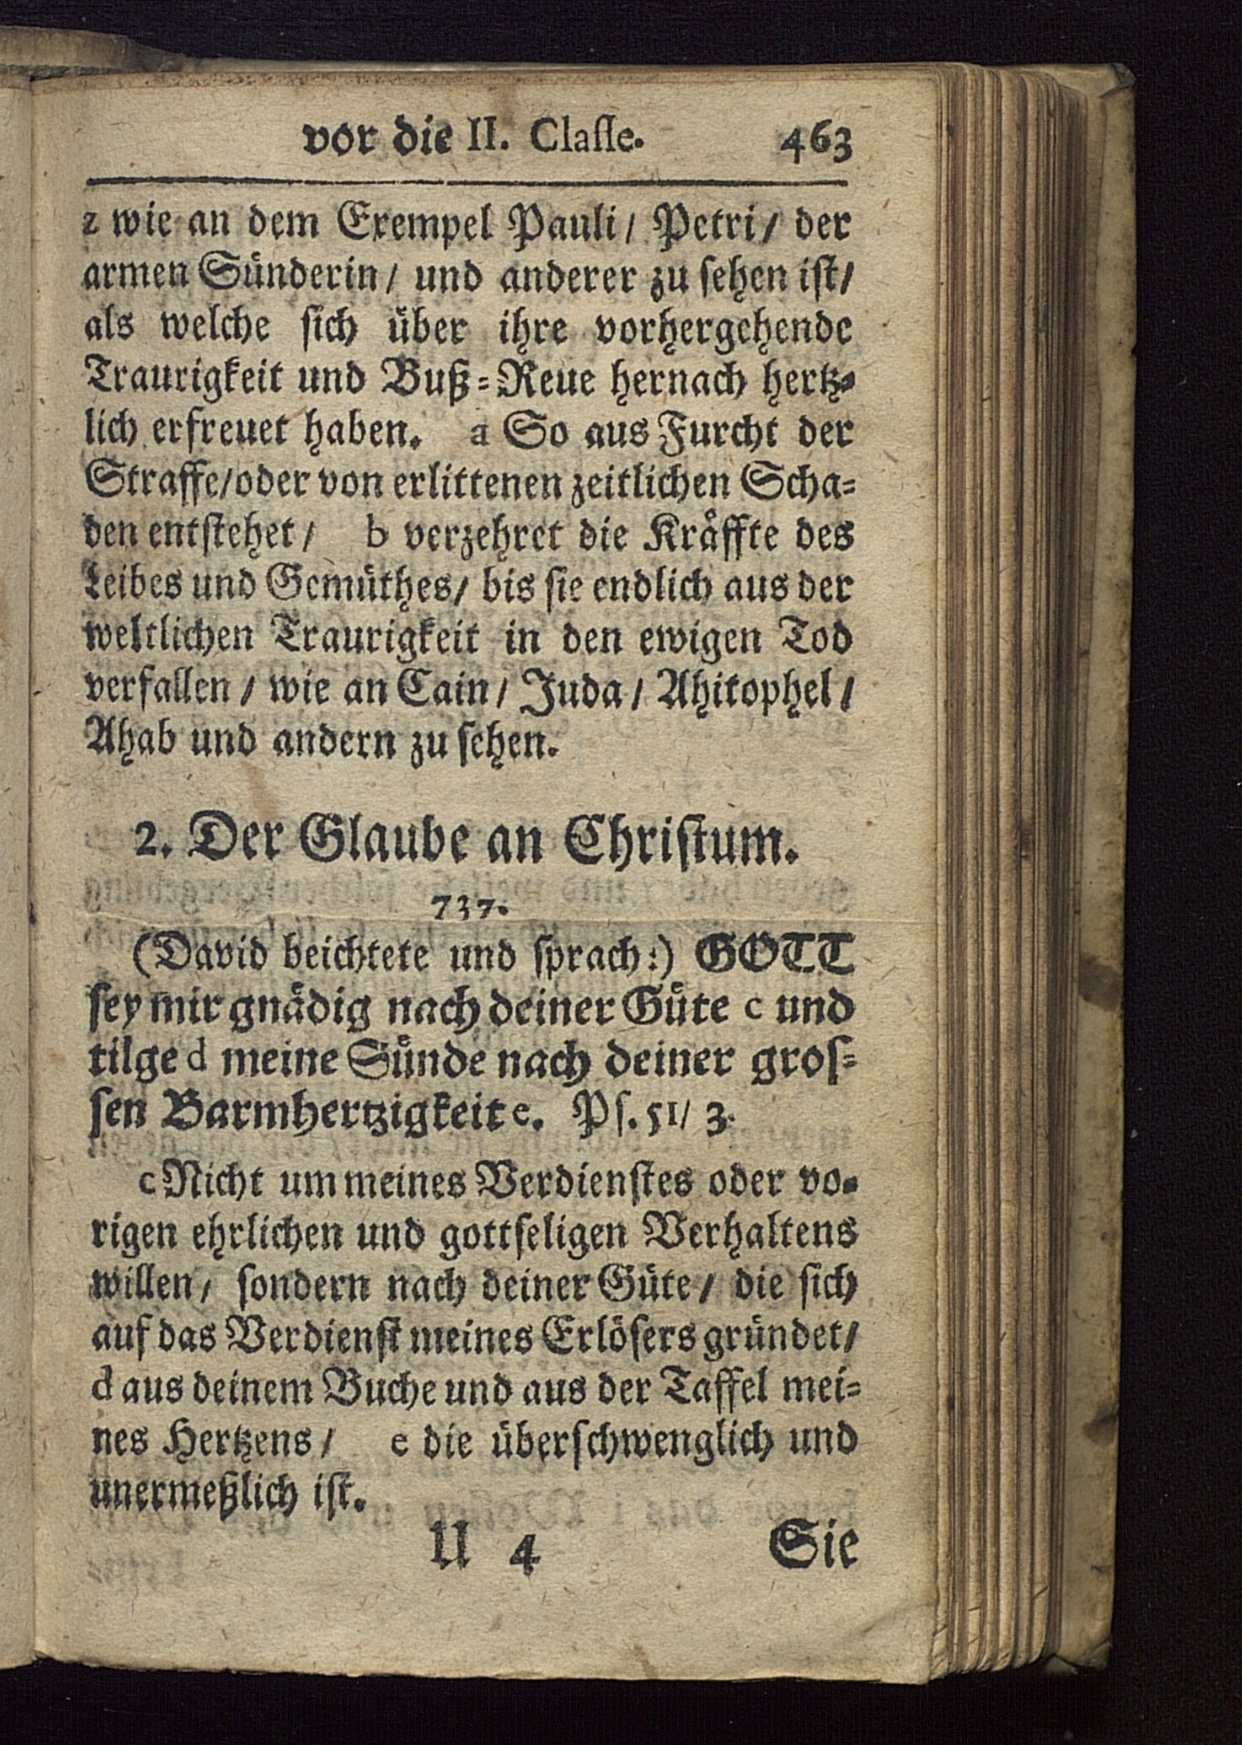 vor die II. Claſſe. 463
z wie an dem Exempel Pauli/ Petri/ der
armen Sünderin/ und anderer zu ſehen iſt/
als welche ſich über ihre vorhergehende
Traurigkeit und Buß-Reue hernach hertz-
lich erfreuet haben. a So aus Furcht der
Straffe/oder von erlittenen zeitlichen Scha-
den entſtehet/ b verzehret die Kräffte des
Leibes und Gemüthes/ bis ſie endlich aus der
weltlichen Traurigkeit in den ewigen Tod
verfallen/ wie an Cain/ Juda/ Ahitophel/
Ahab und andern zu ſehen.
2. Der Glaube an Chriſtum.
737.
(David beichtete und ſprach:) GOTT
ſey mir gnädig nach deiner Güte c und
tilge d meine Sünde nach deiner groſ-
ſen Barmhertzigkeit e. Pſ. 51/ 3.
c Nicht um meines Verdienſtes oder vo-
rigen ehrlichen und gottſeligen Verhaltens
willen/ ſondern nach deiner Güte/ die ſich
auf das Verdienſt meines Erlöſers gründet/
d aus deinem Buche und aus der Taffel mei-
nes Hertzens/ e die überſchwenglich und
unermeßlich iſt.
U 4 Sie